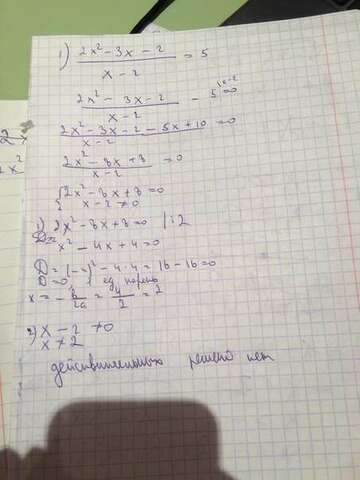 1) (2x² - 3x - 2)/(x - 2) = 5
(2x² - 3x - 2)/(x - 2) - 5 \x-2 = 0
(2x² - 3x - 2 - 5x + 10)/(x - 2) = 0
(2x² - 8x + 8)/(x - 2) = 0
{ 2x² - 8x + 8 = 0
x - 2 ≠ 0
1) 2x² - 8x + 8 = 0 | : 2
x² - 4x + 4 = 0
D = (-4)² - 4·4 = 16 - 16 = 0
D = 0, 1 ед. корень
x = -b/2a = 4/2 = 2
2) x - 2 ≠ 0
x ≠ 2
действительных решений нет